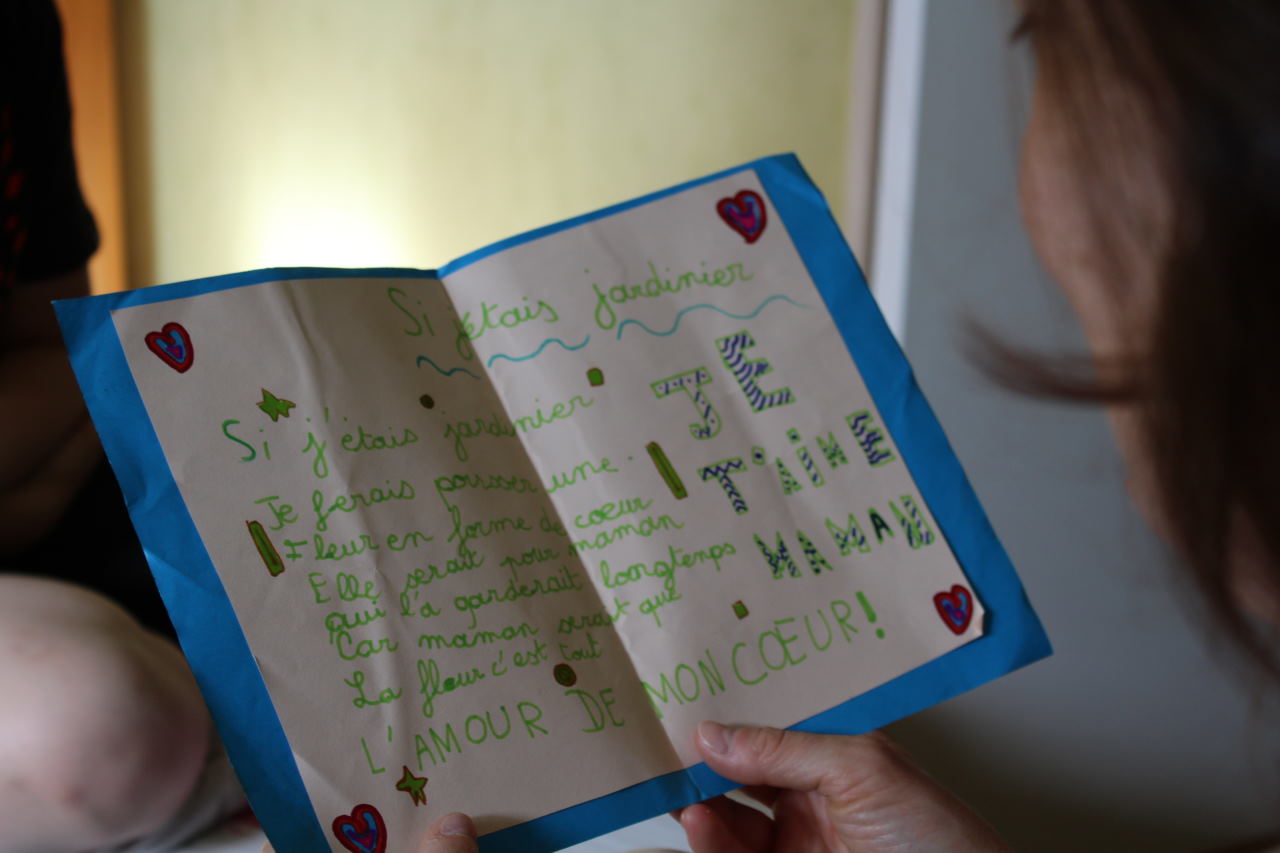 Si j'étais jardinier
Si j'étais jardinier
Je ferais pousser une
fleur en forme de coeur
Elle serait pour maman
qui l'a garderait longtemps
Car maman serait que
La fleur c'est tout
L'AMOUR DE MON CŒUR!
JE
T'AiME
MAMAN